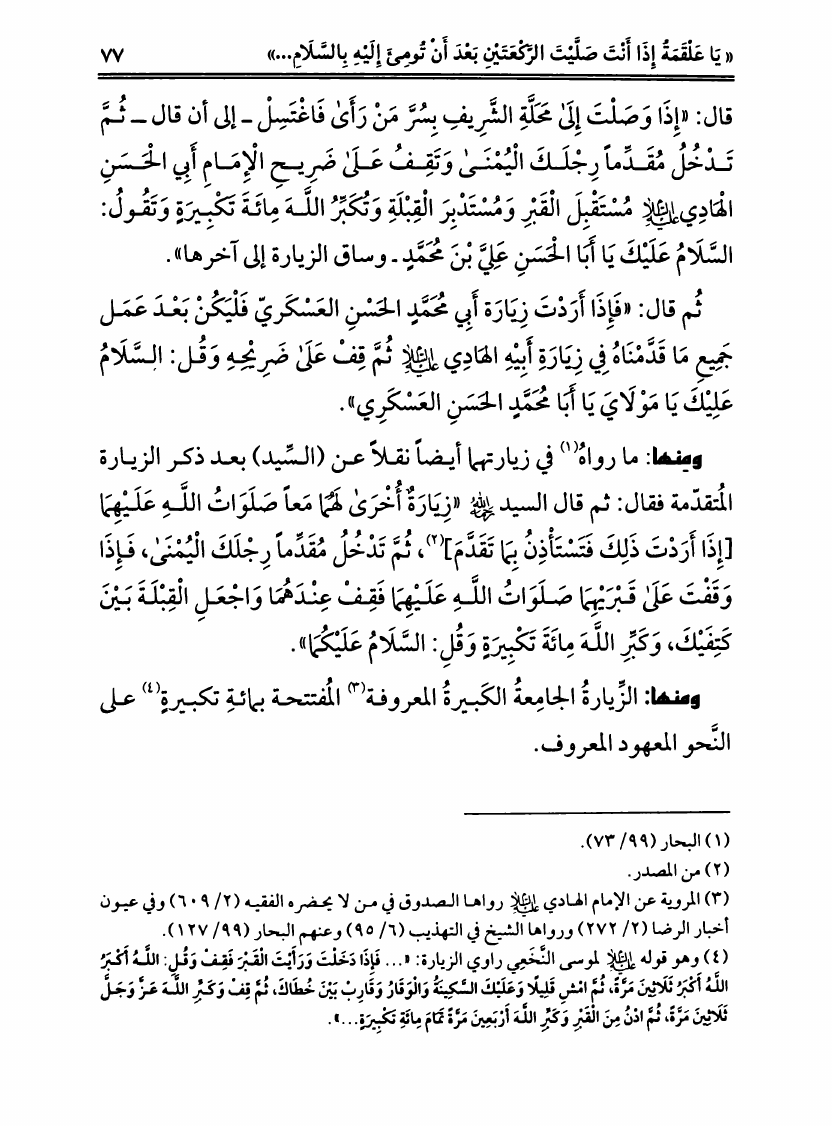 «يَا عَلْقَمَةُ إِذَا أَنْتَ صَلَّيْتَ الرَّكْعَتَيْنِ بَعْدَ أَنْ تُومِئَ إِلَيْهِ بِالسَّلَامِ...» ٧٧
قال: «إِذَا وَصَلْتَ إِلَىٰ مَحَلَّةِ الشَّرِيفِ بِسُرَّ مَنْ رَأَىٰ فَاغْتَسِلْ ـ إلى أن قال ـ ثُمَّ
تَدْخُلُ مُقَدِّماً رِجْلَكَ الْيُمْنَىٰ وَتَقِفُ عَلَىٰ ضَرِيحِ الْإِمَامِ أَبِي الْحَسَنِ
الْهَادِي عليه السلام مُسْتَقْبِلَ الْقَبْرِ وَمُسْتَدْبِرَ الْقِبْلَةِ وَتُكَبِّرُ اللَّهَ مِائَةَ تَكْبِيرَةٍ وَتَقُولُ:
السَّلَامُ عَلَيْكَ يَا أَبَا الْحَسَنِ عَلِيَّ بْنَ مُحَمَّدٍ ـ وساق الزيارة إلى آخرها».
ثُم قال: «فَإِذَا أَرَدْتَ زِيَارَة أَبِي مُحَمَّدٍ الْحَسْنِ العَسْكَرِيّ فَلْيَكُنْ بَعْدَ عَمَلِ
جَمِيعِ مَا قَدَّمْنَاهُ فِي زِيَارَةِ أَبِيْهِ الهَادِي عليه السلام ثُمَّ قِفْ عَلَىٰ ضَرِيْحِهِ وَقُل: السَّلَامُ
عَلَيْكَ يَا مَوْلَايَ يَا أَبَا مُحَمَّدٍ الحَسَنِ العَسْكَرِي».
ومنها: ما رواهُ(١) في زيارتهما أيضاً نقلاً عن (السِّيد) بعد ذكر الزيارة
المُتقدّمة فقال: ثم قال السيد رحمه الله «زِيَارَةٌ أُخْرَىٰ لَهُمَا مَعاً صَلَوَاتُ اللَّهِ عَلَيْهِمَا
[إِذَا أَرَدْتَ ذَلِكَ فَتَسْتَأْذِنُ بِمَا تَقَدَّمَ](٢)، ثُمَّ تَدْخُلُ مُقَدِّماً رِجْلَكَ الْيُمْنَىٰ، فَإِذَا
وَقَفْتَ عَلَىٰ قَبْرَيْهِمَا صَلَوَاتُ اللَّهِ عَلَيْهِمَا فَقِفْ عِنْدَهُمَا وَاجْعَلِ الْقِبْلَةَ بَيْنَ
كَتِفَيْكَ، وَكَبِّرِ اللَّهَ مِائَةَ تَكْبِيرَةٍ وَقُلِ: السَّلَامُ عَلَيْكُمَا».
ومنها: الزِّيارةُ الجامِعةُ الكَبيرةُ المعروفة(٣) المُفتتحة بمائةِ تكبيرةٍ(٤) على
النَّحو المعهود المعروف.
(١) البحار (٩٩/ ٧٣).
(٢) من المصدر.
(٣) المروية عن الإمام الهادي عليه السلام رواها الصدوق في من لا يحضره الفقيه (٢/ ٦٠٩) وفي عيون
أخبار الرضا (٢/ ٢٧٢) ورواها الشيخ في التهذيب (٦/ ٩٥) وعنهم البحار (٩٩/ ١٢٧).
(٤) وهو قوله عليه السلام لموسى النَّخَعِي راوي الزيارة: «... فَإِذَا دَخَلْتَ وَرَأَيْتَ الْقَبْرَ فَقِفْ وَقُلِ: اللَّهُ أَكْبَرُ
اللَّهُ أَكْبَرُ ثَلَاثِينَ مَرَّةً، ثُمَّ امْشِ قَلِيلًا وَعَلَيْكَ السَّكِينَةُ وَالْوَقَارُ وَقَارِبْ بَيْنَ خُطَاكَ، ثُمَّ قِفْ وَكَبِّرِ اللَّهَ عَزَّ وَجَلَّ
ثَلَاثِينَ مَرَّةً، ثُمَّ ادْنُ مِنَ الْقَبْرِ وَكَبِّرِ اللَّهَ أَرْبَعِينَ مَرَّةً تَمَامَ مِائَةِ تَكْبِيرَةٍ...».